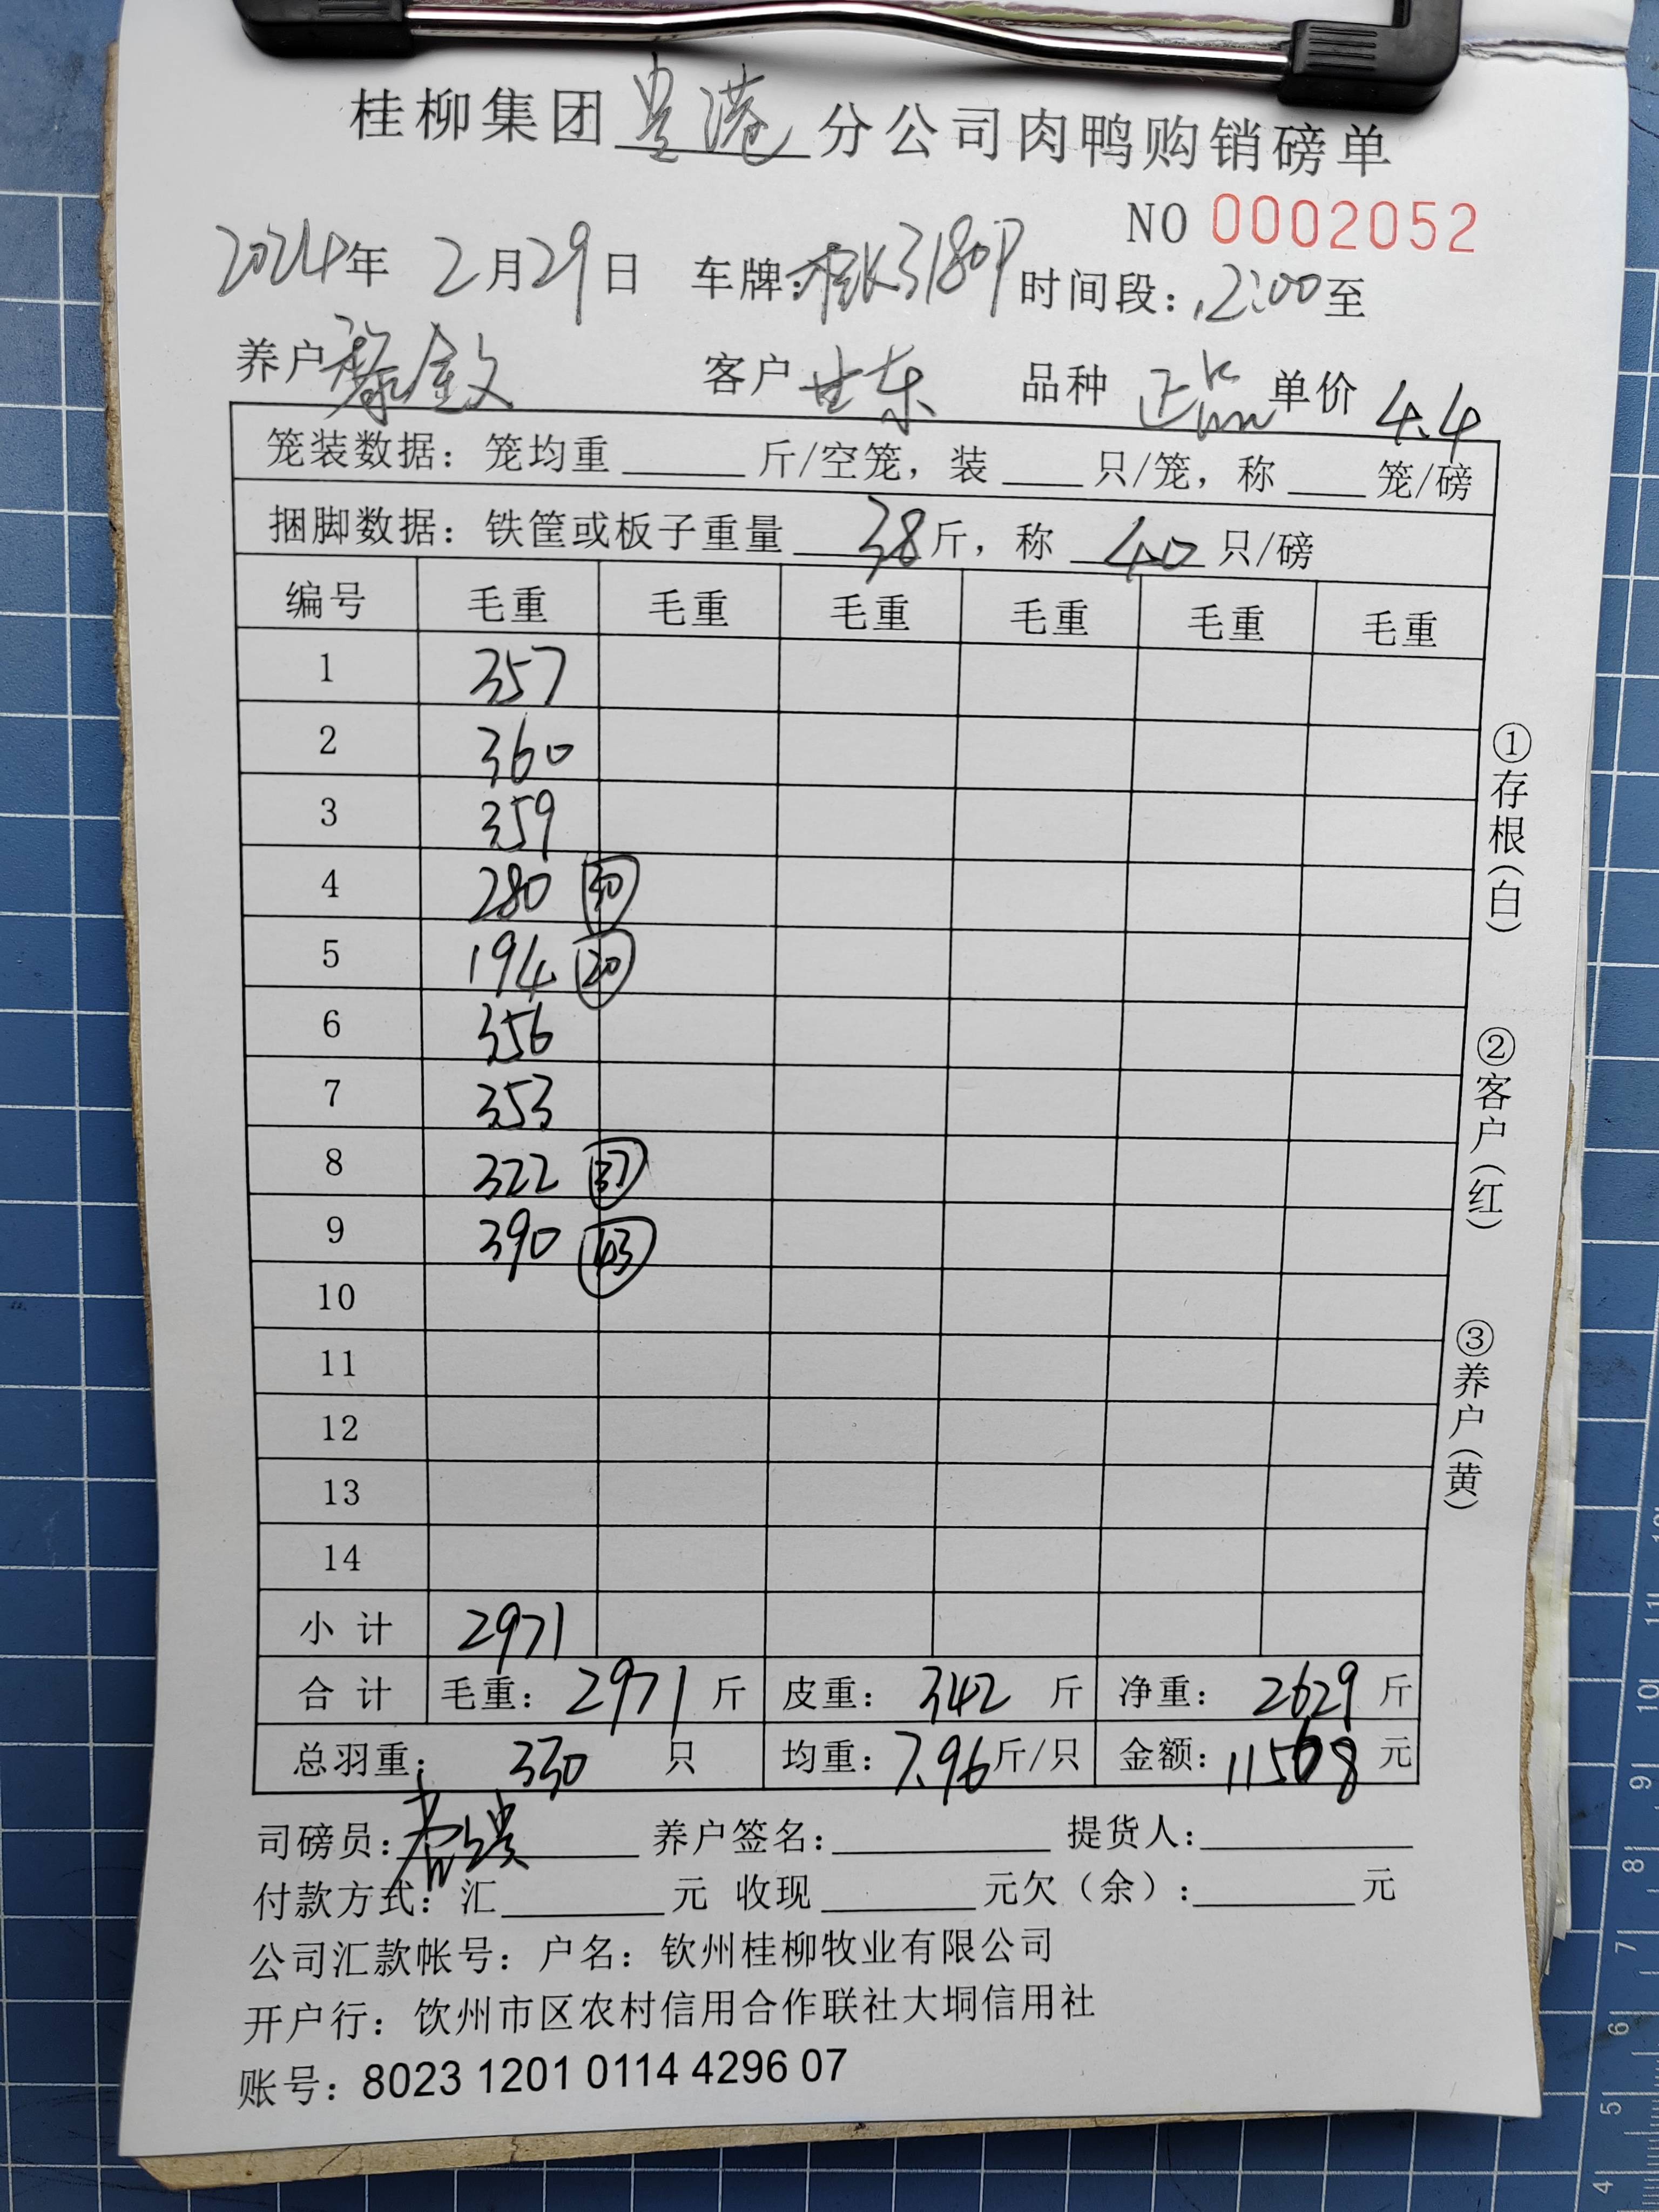 桂柳集团贵港分公司肉鸭购销磅单
NO 0002052
2024年 2月29日 车牌:桂K3180P 时间段:12:00至
养户黎金文 客户 甘东 品种 正品 单价 4.4
笼装数据:笼均重____斤/空笼,装____只/笼,称____笼/磅
捆脚数据:铁筐或板子重量 38斤,称 40 只/磅
编号 毛重 毛重 毛重 毛重 毛重 毛重
1 357
2 360
3 359
4 280 30
5 194 20
6 356
7 353
8 322 37
9 390 43
10
11
12
13
14
小计 2971
合计 毛重:2971斤 皮重:342斤 净重:2629斤
总羽重:330只 均重:7.96斤/只 金额:11568元
司磅员: 养户签名: 提货人:
付款方式:汇____元 收现____元欠(余):____元
公司汇款帐号:户名:钦州桂柳牧业有限公司
开户行:饮州市区农村信用合作联社大垌信用社
账号:8023 1201 0114 4296 07
①存根(白)
②客户(红)
③养户(黄)